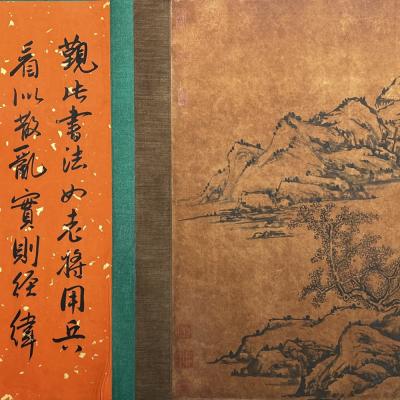 觀此書法如老將用兵
看似散亂實則經緯